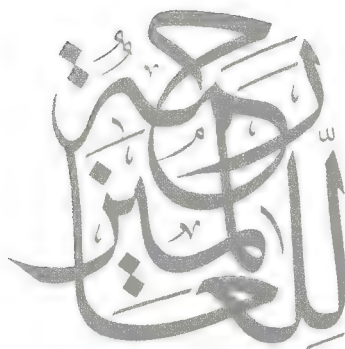 رحمةٌ
لِّلعالمين